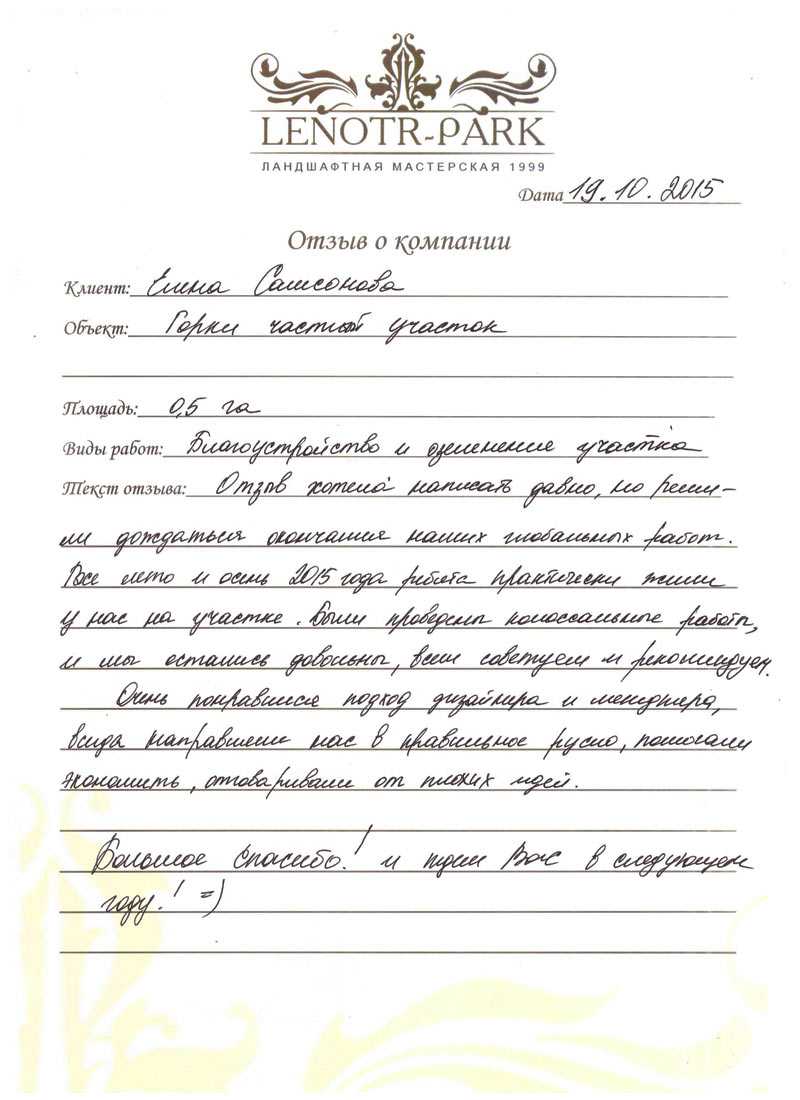 LENOTR-PARK
ЛАНДШАФТНАЯ МАСТЕРСКАЯ 1999
Дата 19.10.2015
Отзыв о компании
Клиент: Елена Самсонова
Объект: Горки частный участок
Площадь: 0,5 га
Виды работ: Благоустройство и озеленение участка
Текст отзыва: Отзыв хотела написать давно, но реши-
ли дождаться окончания наших глобальных работ.
Все лето и осень 2015 года ребята практически жили
у нас на участке. Были проведены колоссальные работы,
и мы остались довольны, всем советуем и рекомендуем.
Очень понравился подход дизайнера и менеджера,
всегда направляли нас в правильное русло, помогали
экономить, отговаривали от плохих идей.
Большое спасибо! и ждем Вас в следующем
году! =)